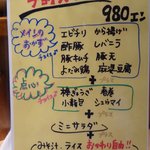 980エン
メインの
おかず
エビチリ から揚げ
酢豚 レバニラ
豚キムチ 豚天
よだれ鶏 麻婆豆腐
プラス
棒ぎょうざ 春巻
小籠包 シュウマイ
プラス
ミニサラダ
プラス
みそ汁、ライス おかわり自由!!